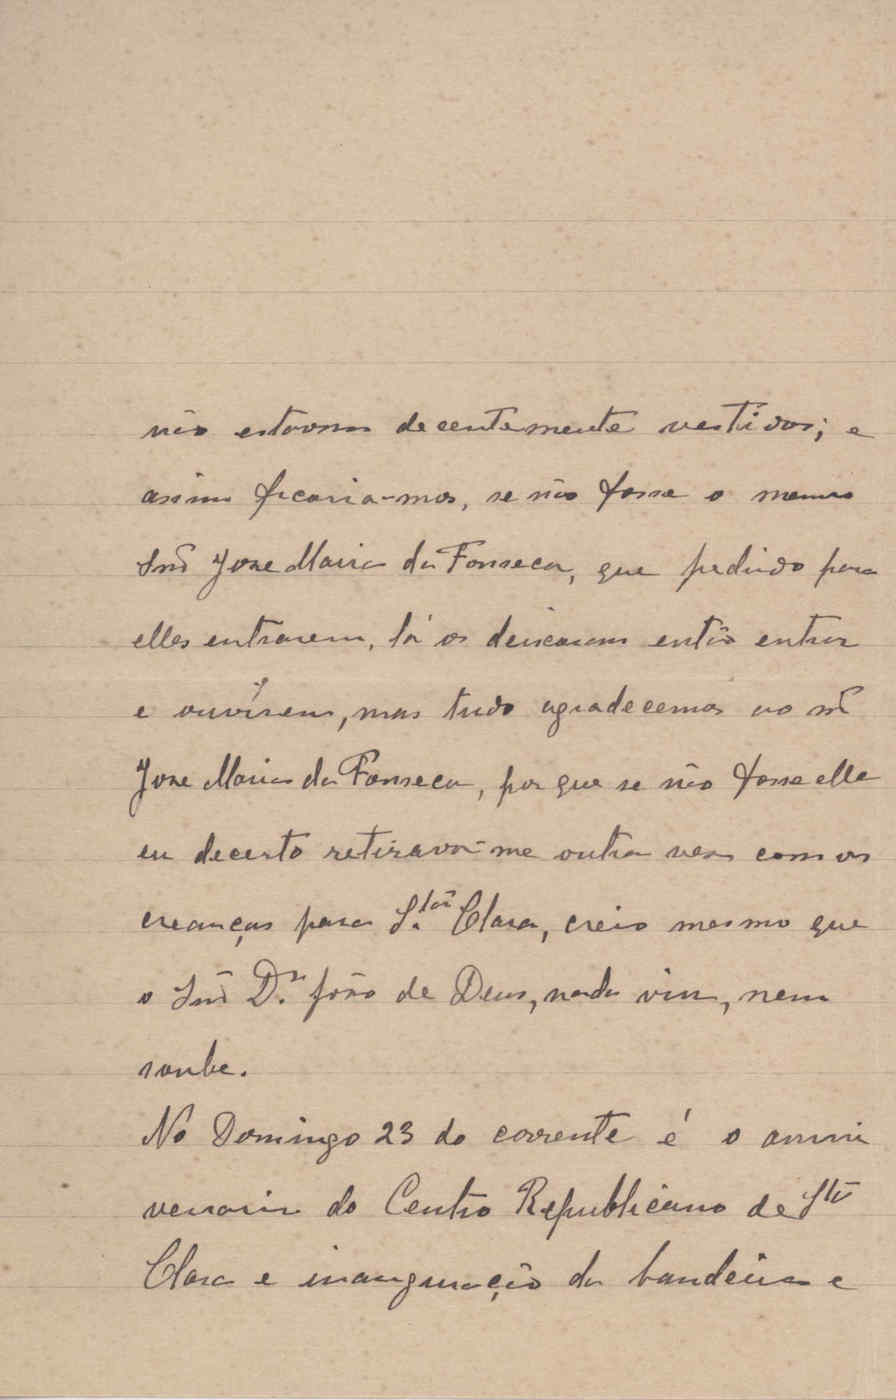 não estavam decentemente vestidos; e
assim ficaria-mos, se não fosse o mesmo
Snr Jose Maria da Fonseca, que pedindo para
elles entrarem, lá os deixaram então entrar
e ouvirem, mas tudo agradecemos ao snr
Jose Maria da Fonseca, por que se não fosse elle
eu decerto retirava-me outra vez com as
creanças para S.ta Clara, creio mesmo que
o Snr D.r João de Deus, nada viu, nem
soube.
No Domingo 23 do corrente é o anni
versario do Centro Republicano de Sta
Clara e inauguração da bandeira e